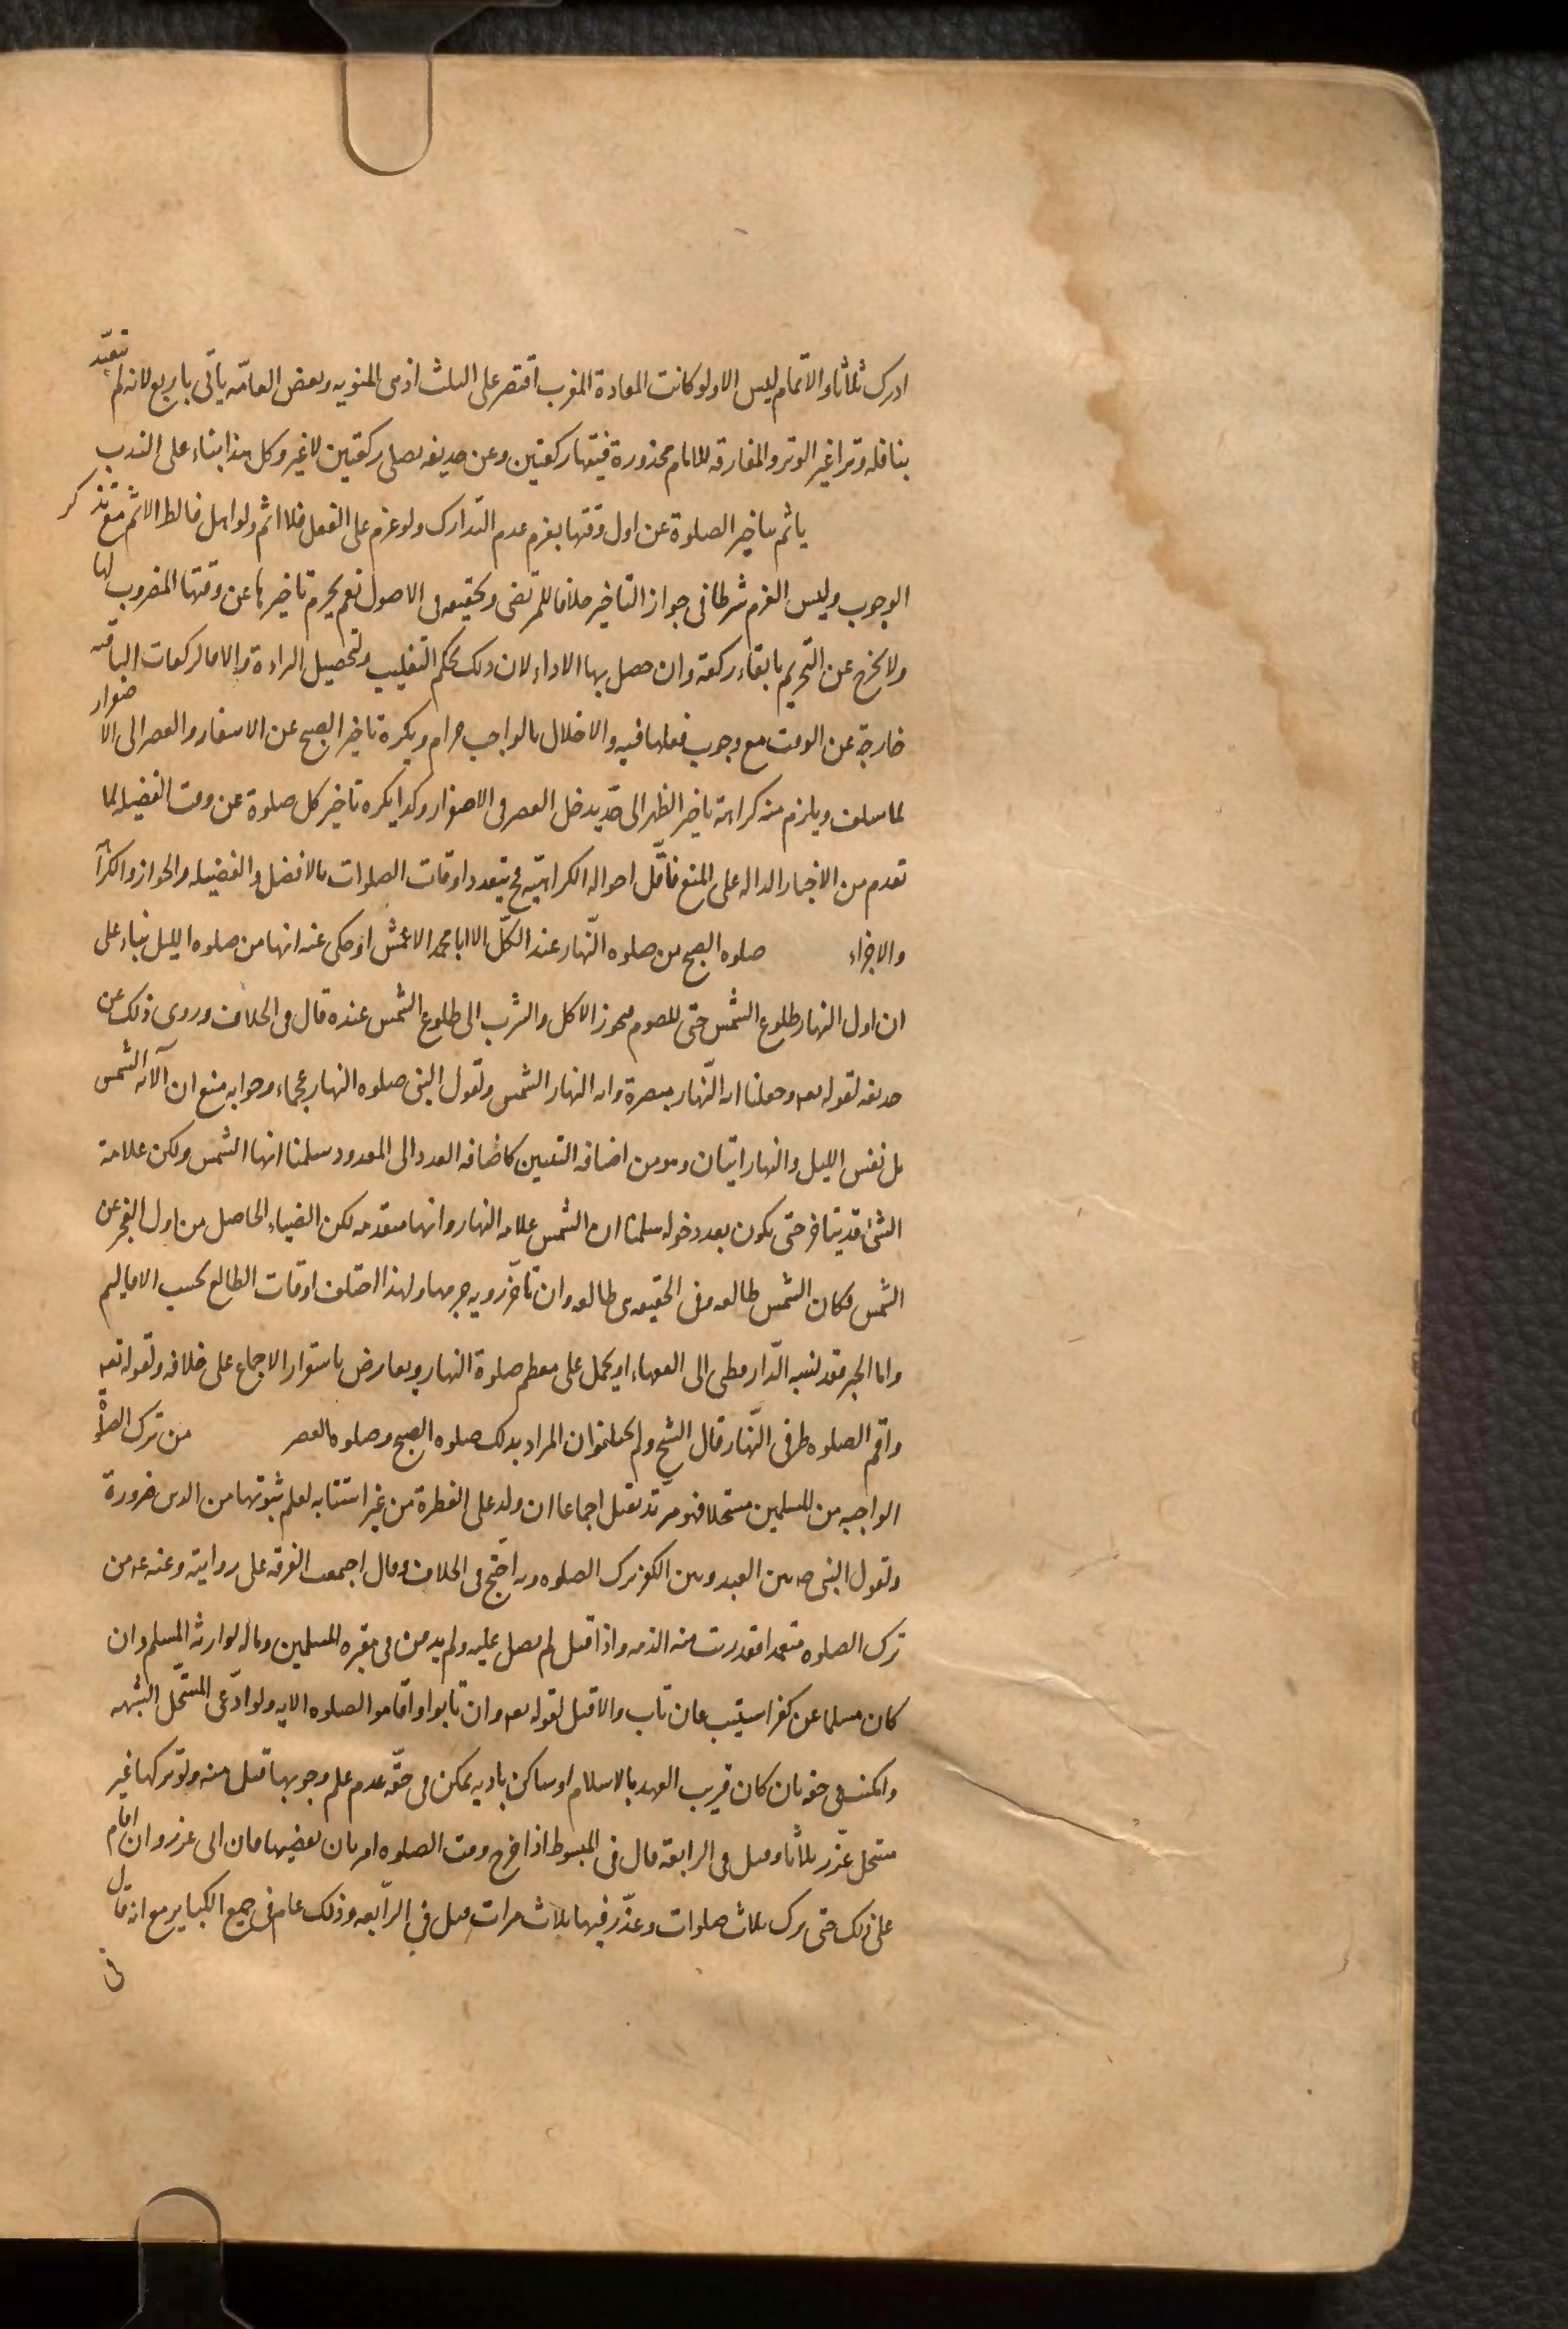 ادرك ثلاثا والاتمام ليس الا ولو كانت المعادة المغرب اقتصر على الثلث اذ هى المنويه وبعض العامّه يأتى باربع لانه لم تتعبّد
بنافله وترا غير الوتر والمفارقه للامام محذورة فيتمها ركعتين وعن حذيفه يصلى ركعتين لا غير وكل هذا بناء على الندب
ياثم بتاخير الصلوة عن اول وقتها بعزم عدم التدارك ولو عزم على الفعل فلا اثم ولو اهمل فالظ الاثم مع تذكر
الوجوب وليس العزم شرطا فى جواز التاخير خلافا للمرتضى وتحقيقه فى الاصول نعم يحرم تاخيرها عن وقتها المضروب لها
ولا يخرج عن التحريم بابقاء ركعة وان حصل بها الاداء لان ذلك بحكم التغليب ولتحصيل الراده والا فالركعات الباقيه
خارجة عن الوقت مع وجوب فعلها فيه والاخلال بالواجب حرام ويكره تاخير الصبح عن الاسفار والعصر الى الاصفرار
لما سلف ويلزم منه كراهة تاخير الظهر الى حدّ يدخل العصر فى الاصفرار وكذا يكره تاخير كل صلوة عن وقت الفضيله لما
تقدم من الاخبار الداله على المنع فاقّل احواله الكراهيّه فح يتعدد اوقات الصلوات بالافضل والفضيله والجواز والكراهة
والاجزاء صلوه الصبح من صلوه النّهار عند الكلّ الا ابا محمد الاعمش اذ حكى عنه انها من صلوه الليل بناء على
ان اول النهار طلوع الشمس حتى للصوم فيجوز الاكل والشرب الى طلوع الشمس عنده قال فى الخلاف وروى ذلك عن
حذيفه لقوله تعه وجعلنا ايه النّهار مبصرة وايه النهار الشمس ولقول النبى صلوه النهار عجماء وجوابه منع ان الآيه الشمس
بل نفس الليل والنهار ايتان وهو من اضافه التبيين كاضافه العدد الى المعدود سلمنا انها الشمس ولكن علامة
الشئ قد يتاخر حتى يكون بعد دخوله سلمنا ان الشمس علامه النهار وانها متقدمه لكن الضياء الحاصل من اول الفجر عن
الشمس فكان الشمس طالعه وفى الحقيقه هى طالعه وان تاخّر رويه جرمها ولهذا اختلف اوقات الطالع بحسب الاقاليم
واما الخبر فقد نسبه الدّار قطنى الى الفقهاء او يحمل على معظم صلوة النهار ويعارض باستقرار الاجماع على خلافه ولقوله تعه
واقم الصلوه طرفى النّهار قال الشيخ ولم يختلفوا ان المراد بذلك صلوه الصبح وصلوه العصر من ترك الصلوة
الواجبه من المسلمين مستحلا فهو مرتد يقتل اجماعا ان ولد على الفطرة من غير استتابه لعلم ثبوتها من الدين ضرورة
ولقول النبى ص بين العبد وبين الكفر ترك الصلوه وبه احتّج فى الخلاف وقال اجمعت الفرقه على روايته وعنه ع من
ترك الصلوه متعمدا فقد برئت منه الذمه واذا قتل لم يصل عليه ولم يدفن فى مقبره المسلمين وماله لوارثه المسلم وان
كان مسلما عن كفر استتيب فان تاب والا قتل لقوله تعه وان تابوا واقاموا الصلوه الايه ولو ادّعى المستحّل الشبهه
وامكنت فى حقه بان كان قريب العهد بالاسلام او ساكن باديه يمكن فى حقّه عدم علم وجوبها قبل منه ولو تركها غير
مستحل عزّر ثلاثا وقتل فى الرابعة قال فى المبسوط اذا خرج وقت الصلوه امر بان يقضيها فان ابى عزر وان اقام
على ذلك حتى ترك ثلاث صلوات وعزّر فيها ثلاث مرات قتل فى الرّابعه وذلك عام فى جميع الكباير مع انه قال
فى